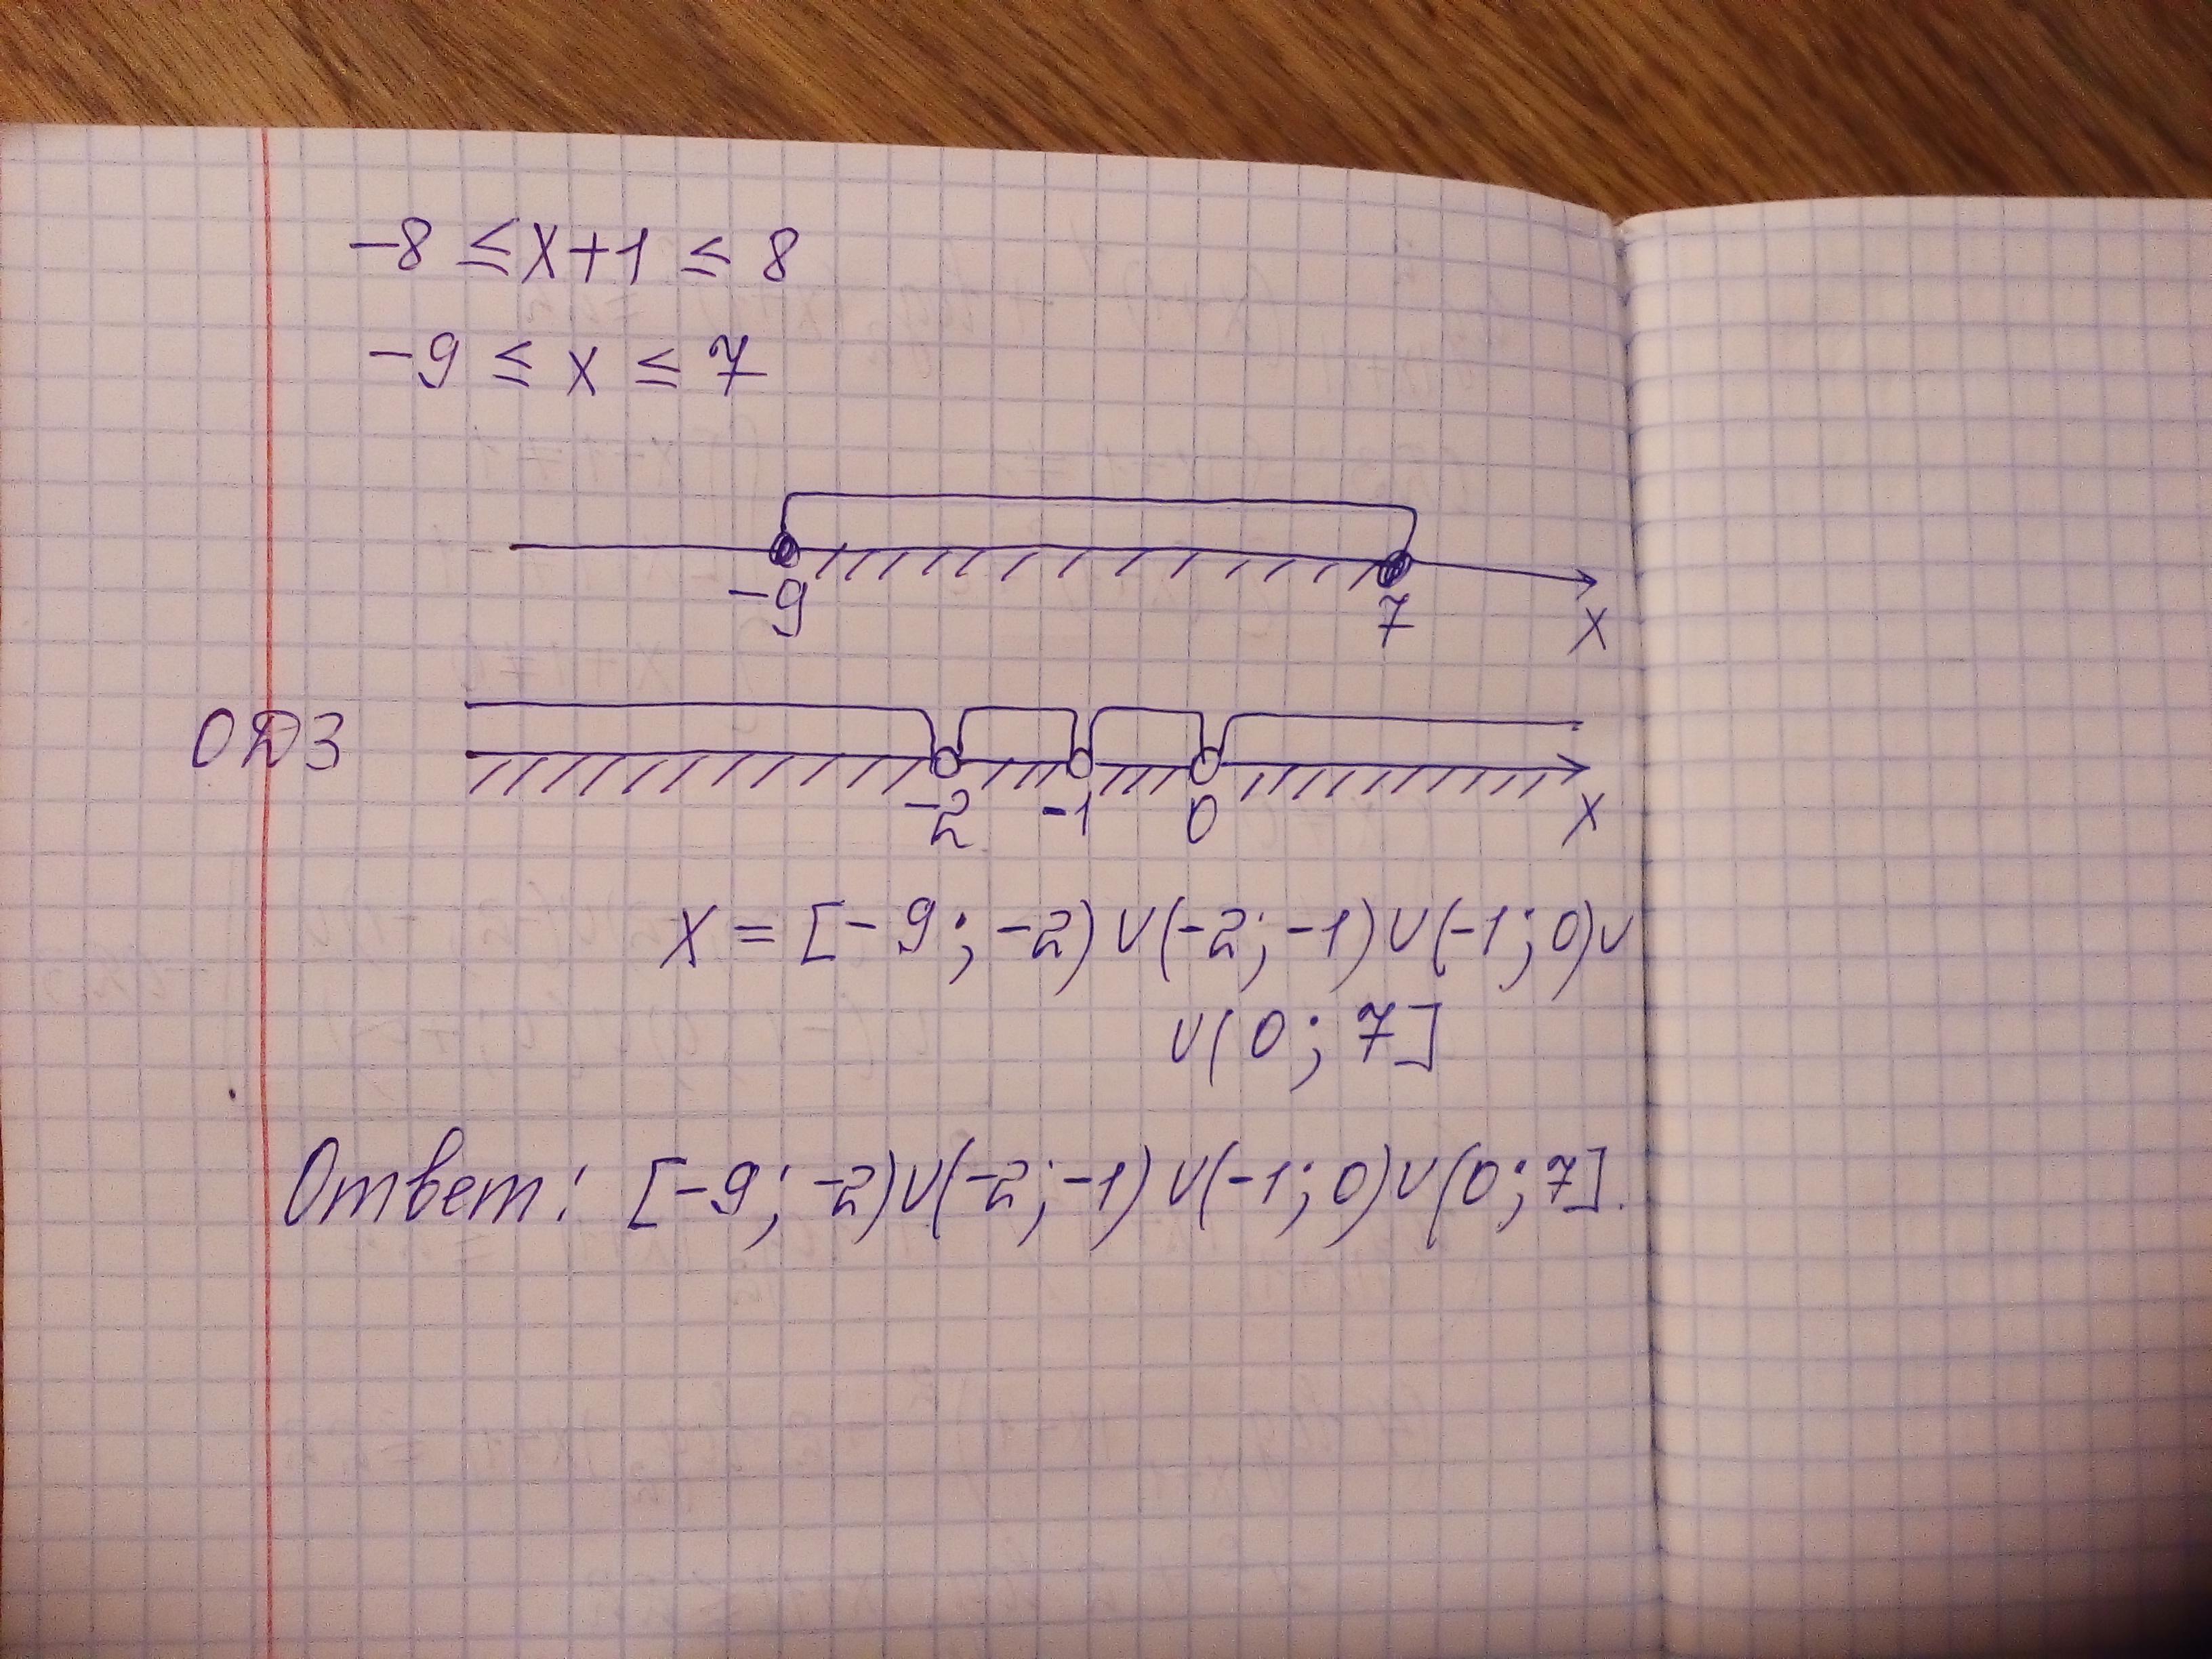 -8 ≤ x+1 ≤ 8
-9 ≤ x ≤ 7
-9 7 x
ОДЗ
-2 -1 0 x
x = [-9; -2) ∪ (-2; -1) ∪ (-1; 0) ∪
∪ (0; 7]
Ответ: [-9; -2) ∪ (-2; -1) ∪ (-1; 0) ∪ (0; 7].